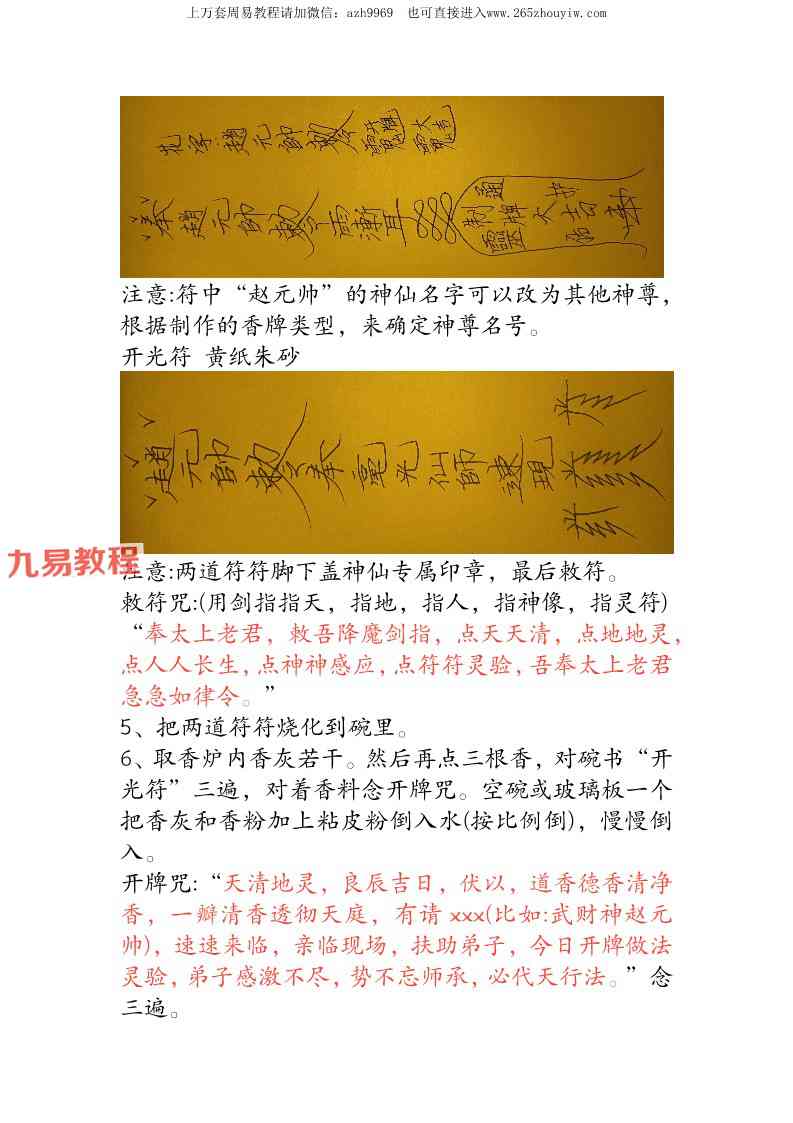 上万套周易教程请加微信：azh9969 也可直接进入www.265zhouyiw.com
注意:符中“赵元帅”的神仙名字可以改为其他神尊，
根据制作的香牌类型，来确定神尊名号。
开光符 黄纸朱砂
九易教程
注意:两道符符脚下盖神仙专属印章，最后敕符。
敕符咒:(用剑指指天，指地，指人，指神像，指灵符)
“奉太上老君，敕吾降魔剑指，点天天清，点地地灵，
点人人长生，点神神感应，点符符灵验，吾奉太上老君
急急如律令。”
5、把两道符符烧化到碗里。
6、取香炉内香灰若干。然后再点三根香，对碗书“开
光符”三遍，对着香料念开牌咒。空碗或玻璃板一个
把香灰和香粉加上粘皮粉倒入水(按比例倒)，慢慢倒
入。
开牌咒:“天清地灵，良辰吉日，伏以，道香德香清净
香，一瓣清香透彻天庭，有请 xxx(比如:武财神赵元
帅)，速速来临，亲临现场，扶助弟子，今日开牌做法
灵验，弟子感激不尽，势不忘师承，必代天行法。”念
三遍。